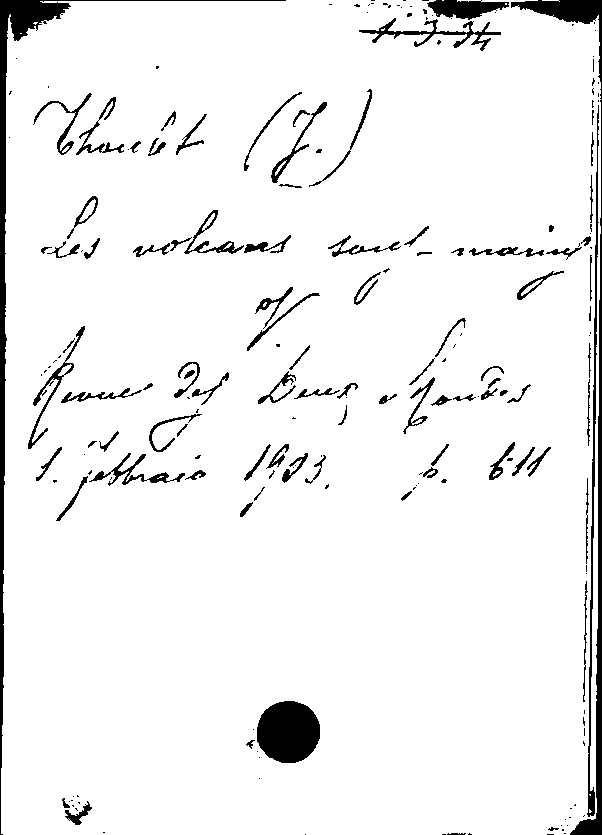 1.3.34
Thoulet (J.)
Les volcans sous-marins
V
Revue des Deux Mondes
1. febbraio 1903. p. 611